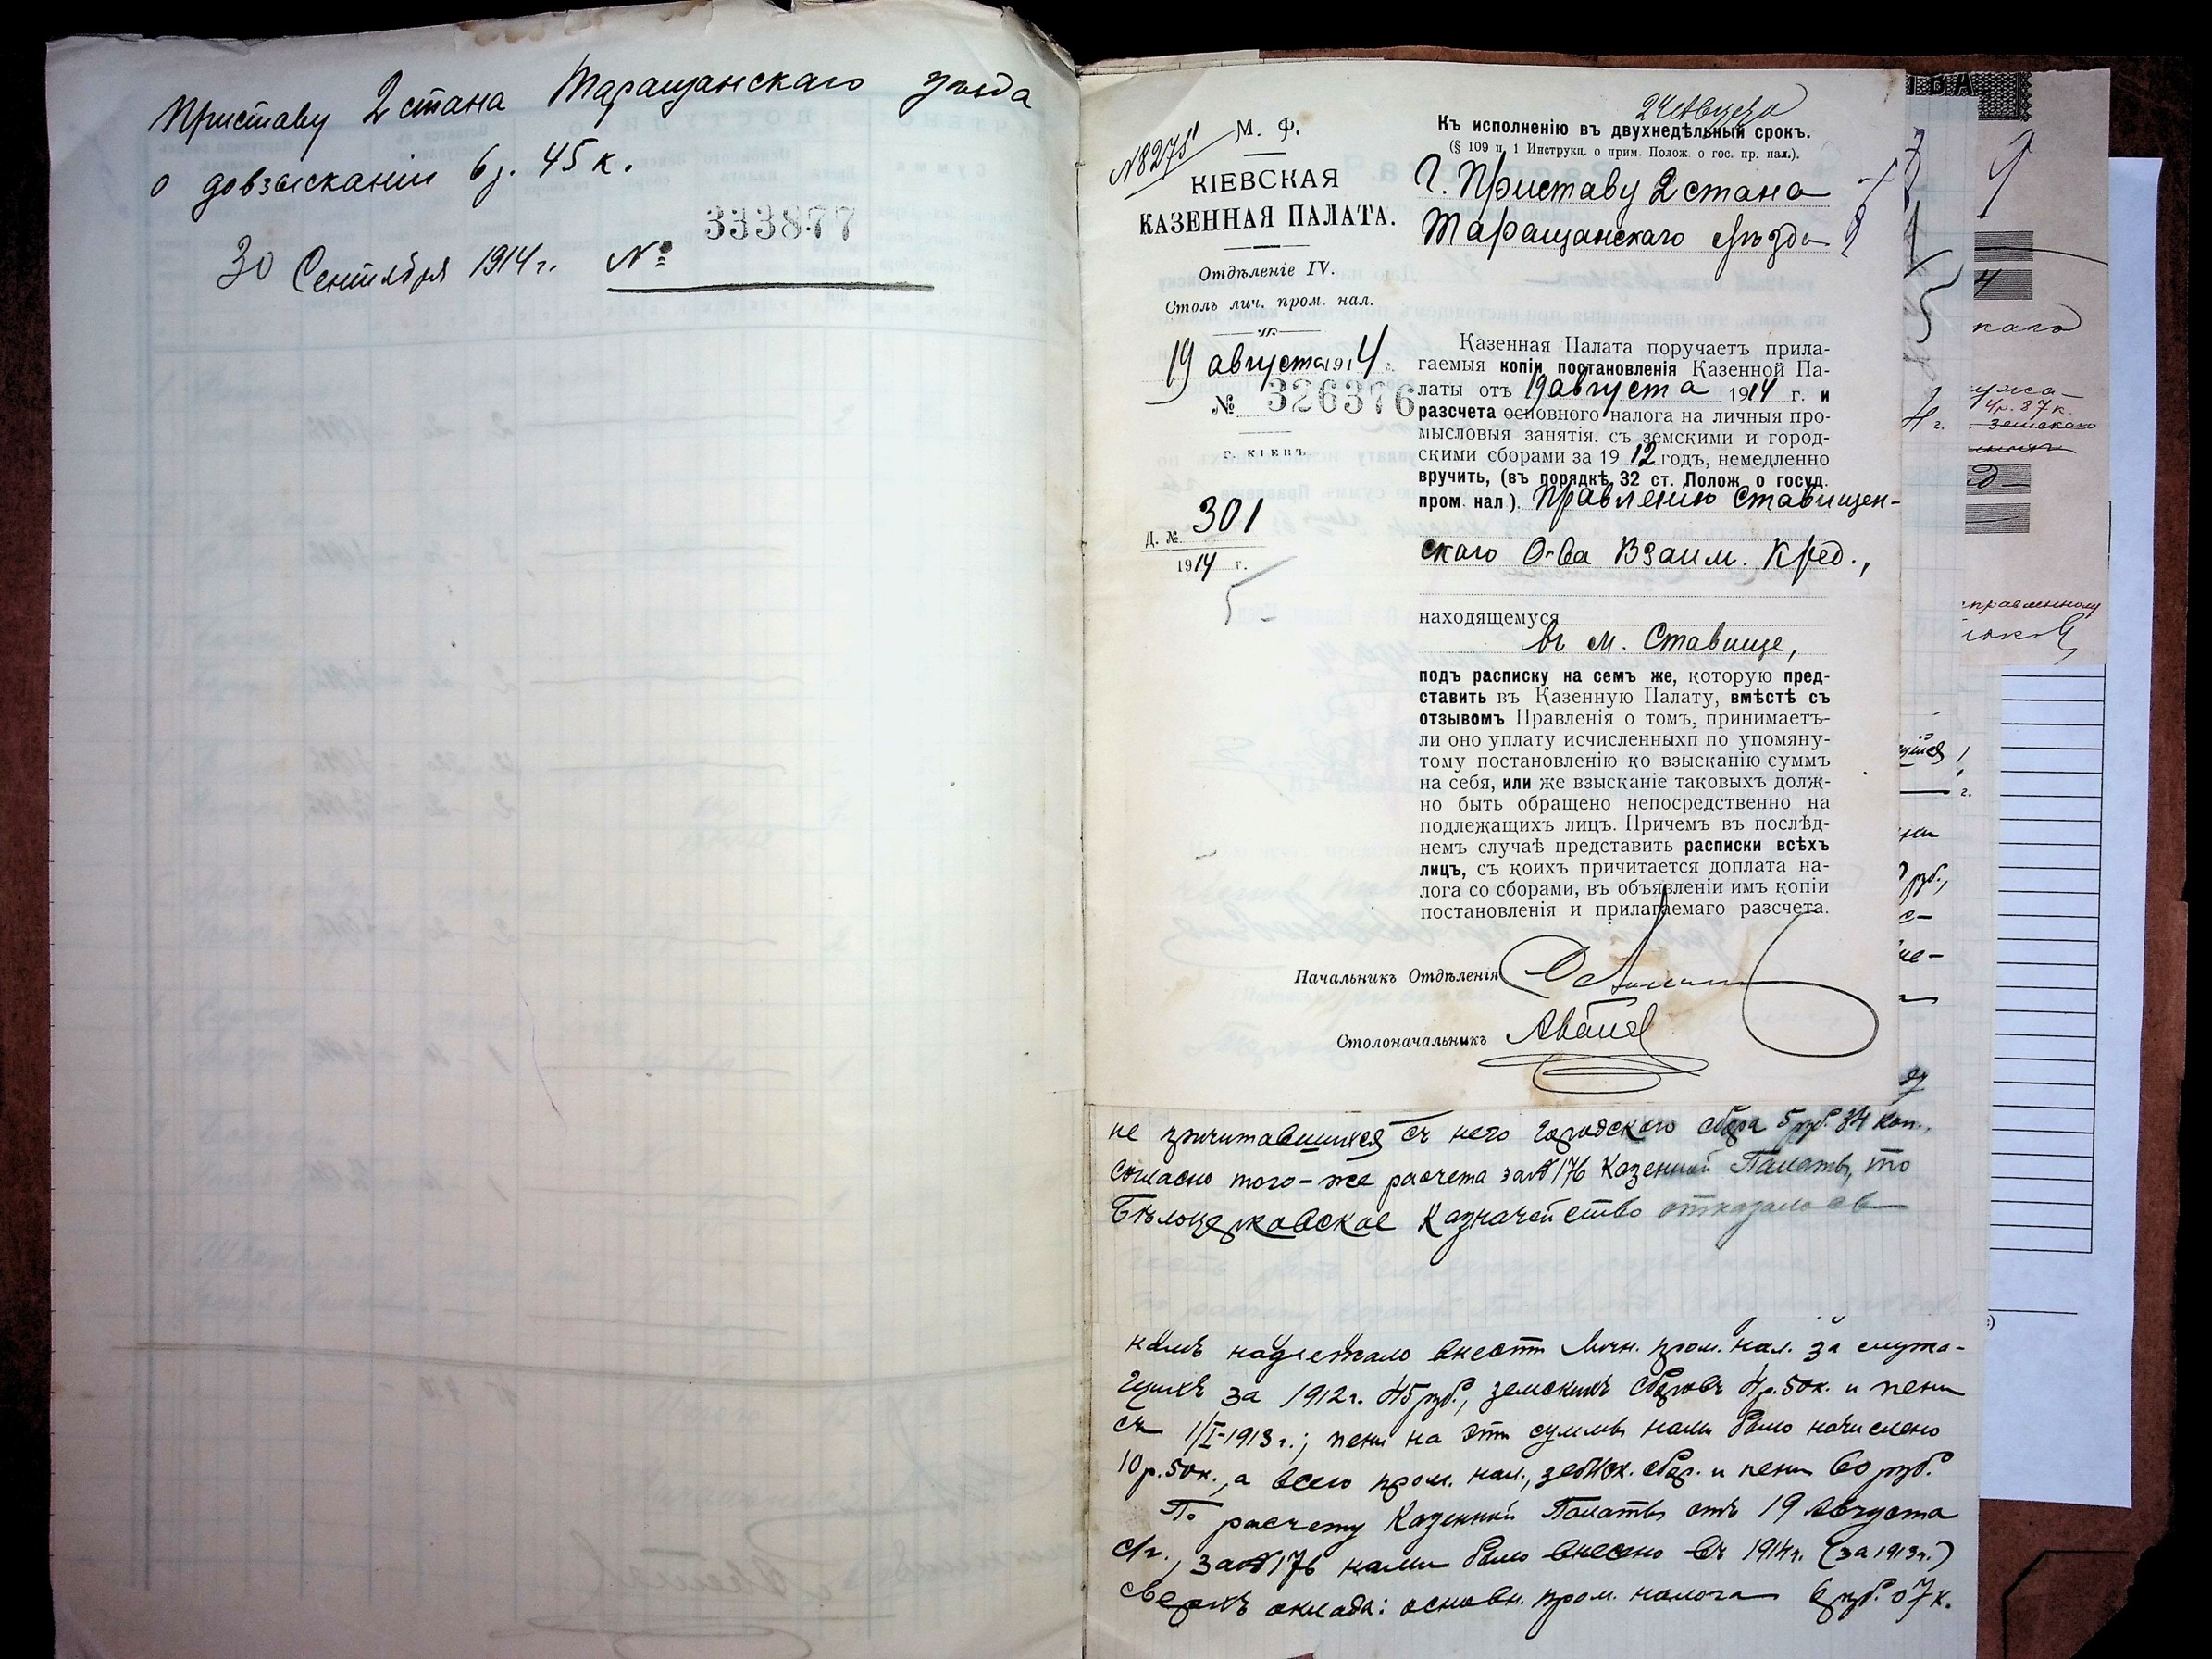 Приставу 2 стана Таращанскаго уѣзда
о довзысканіи 6 р. 45 к.
333877
30 Сентября 1914 г. №
№ 8275
М. Ф.
КІЕВСКАЯ
КАЗЕННАЯ ПАЛАТА.
Отдѣленіе IV.
Столъ лич. пром. нал.
19 августа 1914 г.
№ 326376
г. КІЕВЪ
Д. № 301
1914 г.
Къ исполненію въ двухнедѣльный срокъ.
(§ 109 п. 1 Инструкц. о прим. Полож. о гос. пр. нал.).
Г. Приставу 2 стана
Таращанскаго уѣзда
Казенная Палата поручаетъ прила-
гаемыя копіи постановленія Казенной Па-
латы отъ 19 августа 1914 г. и
разсчета основного налога на личныя про-
мысловыя занятія. съ земскими и город-
скими сборами за 1912 годъ, немедленно
вручить, (въ порядкѣ 32 ст. Полож. о госуд.
пром. нал). Правленію Ставищен-
скаго О-ва Взаим. Кред.,
находящемуся
въ м. Ставище,
подъ расписку на семъ же, которую пред-
ставить въ Казенную Палату, вмѣстѣ съ
отзывомъ Правленія о томъ, принимаетъ-
ли оно уплату исчисленныхп по упомяну-
тому постановленію ко взысканію суммъ
на себя, или же взысканіе таковыхъ долж-
но быть обращено непосредственно на
подлежащихъ лицъ. Причемъ въ послѣд-
немъ случаѣ представить расписки всѣхъ
лицъ, съ коихъ причитается доплата на-
лога со сборами, въ объявленіи имъ копіи
постановленія и прилагаемаго разсчета.
Начальникъ Отдѣленія
Столоначальникъ
не причитавшихся съ него городского сбора 5 руб. 34 коп.,
согласно того-же расчета за № 176 Казенной Палаты, то
Бѣлоцерковское Казначейство отказалось
намъ надлежало внести личн. пром. нал. за служа-
щихъ за 1912 г. 45 руб., земскихъ сборовъ 4 р. 50 к. и пени
съ 1/I-1913 г.; пени на эти суммы нами было начислено
10 р. 50 к., а всего пром. нал., земск. сбор. и пени 60 руб.
По расчету Казенной Палаты отъ 19 Августа
с/г., за № 176 нами было внесено въ 1914 г. (за 1913 г.)
сверхъ оклада: основн. пром. налога 6 руб. 07 к.
4 р. 87 к.
земскаго
руб.,